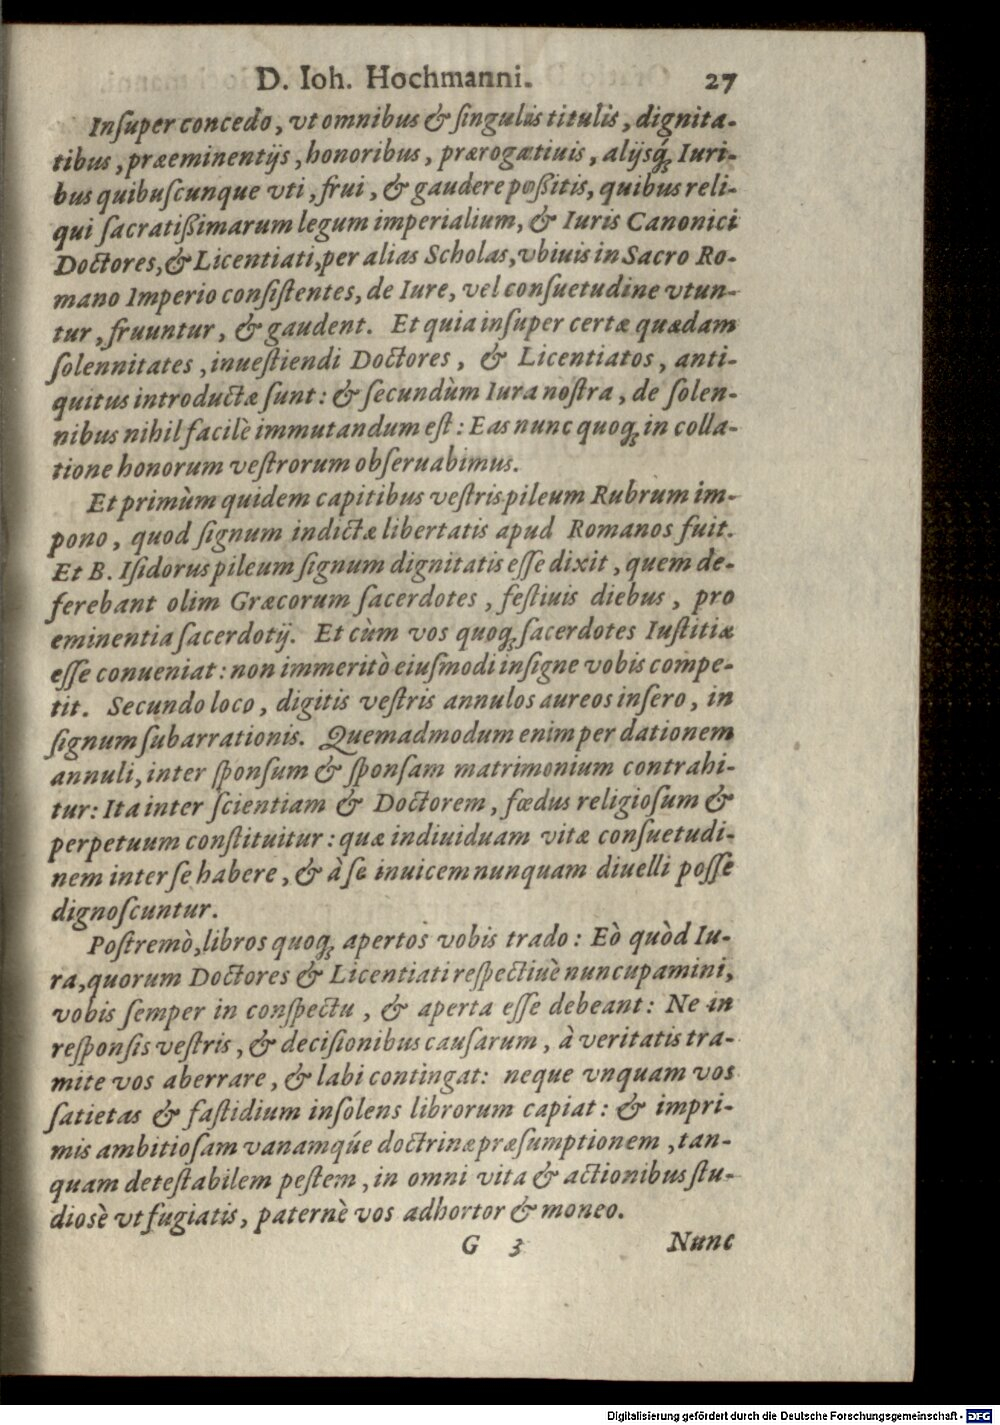 D. Ioh. Hochmanni. 27
Inſuper concedo, vt omnibus & ſingulis titulis, dignita-
tibus, præeminentijs, honoribus, prærogatiuis, alijsq́; Iuri-
bus quibuſcunque vti, frui, & gaudere poßitis, quibus reli-
qui ſacratißimarum legum imperialium, & Iuris Canonici
Doctores, & Licentiati, per alias Scholas, vbiuis in Sacro Ro-
mano Imperio conſiſtentes, de Iure, vel conſuetudine vtun-
tur, fruuntur, & gaudent. Et quia inſuper certæ quædam
ſolennitates, inueſtiendi Doctores, & Licentiatos, anti-
quitus introductæ ſunt: & ſecundùm Iura noſtra, de ſolen-
nibus nihil facilè immutandum eſt: Eas nunc quoq; in colla-
tione honorum veſtrorum obſeruabimus.
Et primùm quidem capitibus veſtris pileum Rubrum im-
pono, quod ſignum indictæ libertatis apud Romanos fuit.
Et B. Iſidorus pileum ſignum dignitatis eſſe dixit, quem de-
ferebant olim Græcorum ſacerdotes, feſtiuis diebus, pro
eminentia ſacerdotij. Et cùm vos quoq; ſacerdotes Iuſtitiæ
eſſe conueniat: non immeritò eiuſmodi inſigne vobis compe-
tit. Secundo loco, digitis veſtris annulos aureos inſero, in
ſignum ſubarrationis. Quemadmodum enim per dationem
annuli, inter ſponſum & ſponſam matrimonium contrahi-
tur: Ita inter ſcientiam & Doctorem, fœdus religioſum &
perpetuum conſtituitur: quæ indiuiduam vitæ conſuetudi-
nem inter ſe habere, & à ſe inuicem nunquam diuelli poſſe
dignoſcuntur.
Poſtremò, libros quoq; apertos vobis trado: Eò quòd Iu-
ra, quorum Doctores & Licentiati reſpectiuè nuncupamini,
vobis ſemper in conſpectu, & aperta eſſe debeant: Ne in
reſponſis veſtris, & deciſionibus cauſarum, à veritatis tra-
mite vos aberrare, & labi contingat: neque vnquam vos
ſatietas & faſtidium inſolens librorum capiat: & impri-
mis ambitioſam vanamqúe doctrinæ præſumptionem, tan-
quam deteſtabilem peſtem, in omni vita & actionibus ſtu-
dioſè vt fugiatis, paternè vos adhortor & moneo.
G 3 Nunc
Digitalisierung gefördert durch die Deutsche Forschungsgemeinschaft - DFG